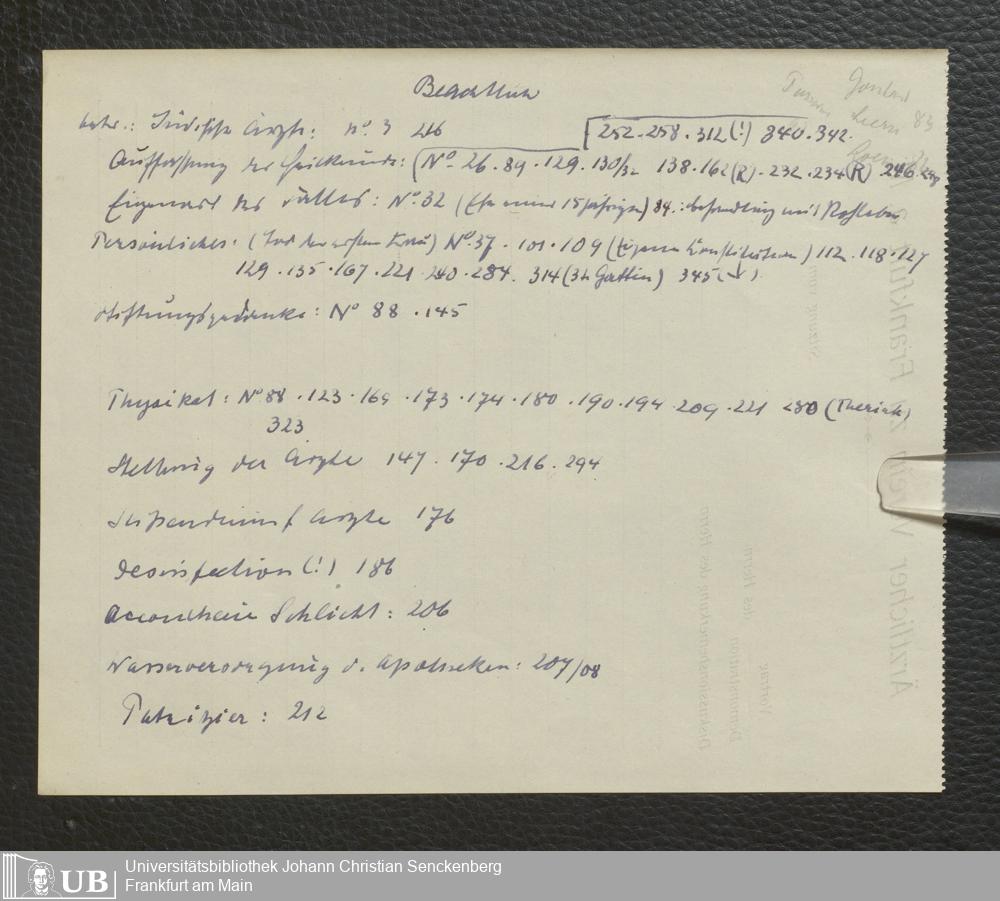 Beachtlich
betr.: Jüdische Ärzte: No. 3 216
252 . 258 . 312 (!) 340 . 342.
Auffassung der Heilkunde: (No. 26 . 89 . 129 . 130/32 138 . 162 (R) . 232 . 234 (R) 246
Eigenart des Falles: No. 32 (15 jährigen) 84.: Behandlung mit
Persönliches. (Tod der ersten Frau) No. 37 . 101 . 109 (Eigene Constitution) 112 . 118 . 127
129 . 135 . 167 . 221 . 240 . 284 . 314 (3te Gattin) 345
Stiftungsgedanke: No 88 . 145
Physikat: No 88 . 123 . 169 . 173 . 174 . 180 . 190 . 194 . 209 . 221 280 (Theriak)
323
Stellung der Ärzte 147 . 170 . 216 . 294
Stipendium f Ärzte 176
Desinfection (!) 186
Accoucheur Schlicht: 206
Wasserversorgung d. Apotheken: 207/08
Patrizier: 212
Ärztlicher Verein z. Frankfurt
Sitzung vom
Diskussionsbemerkung des Herrn
Demonstration des Herrn
Vortrag
UB
Universitätsbibliothek Johann Christian Senckenberg
Frankfurt am Main